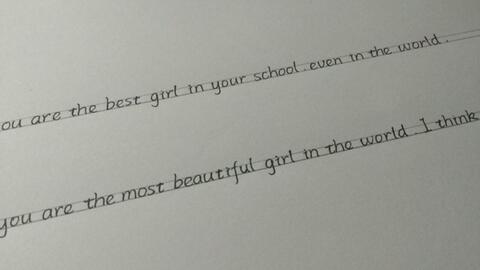 ou are the best girl in your school.even in the world.
you are the most beautiful girl in the world.I think